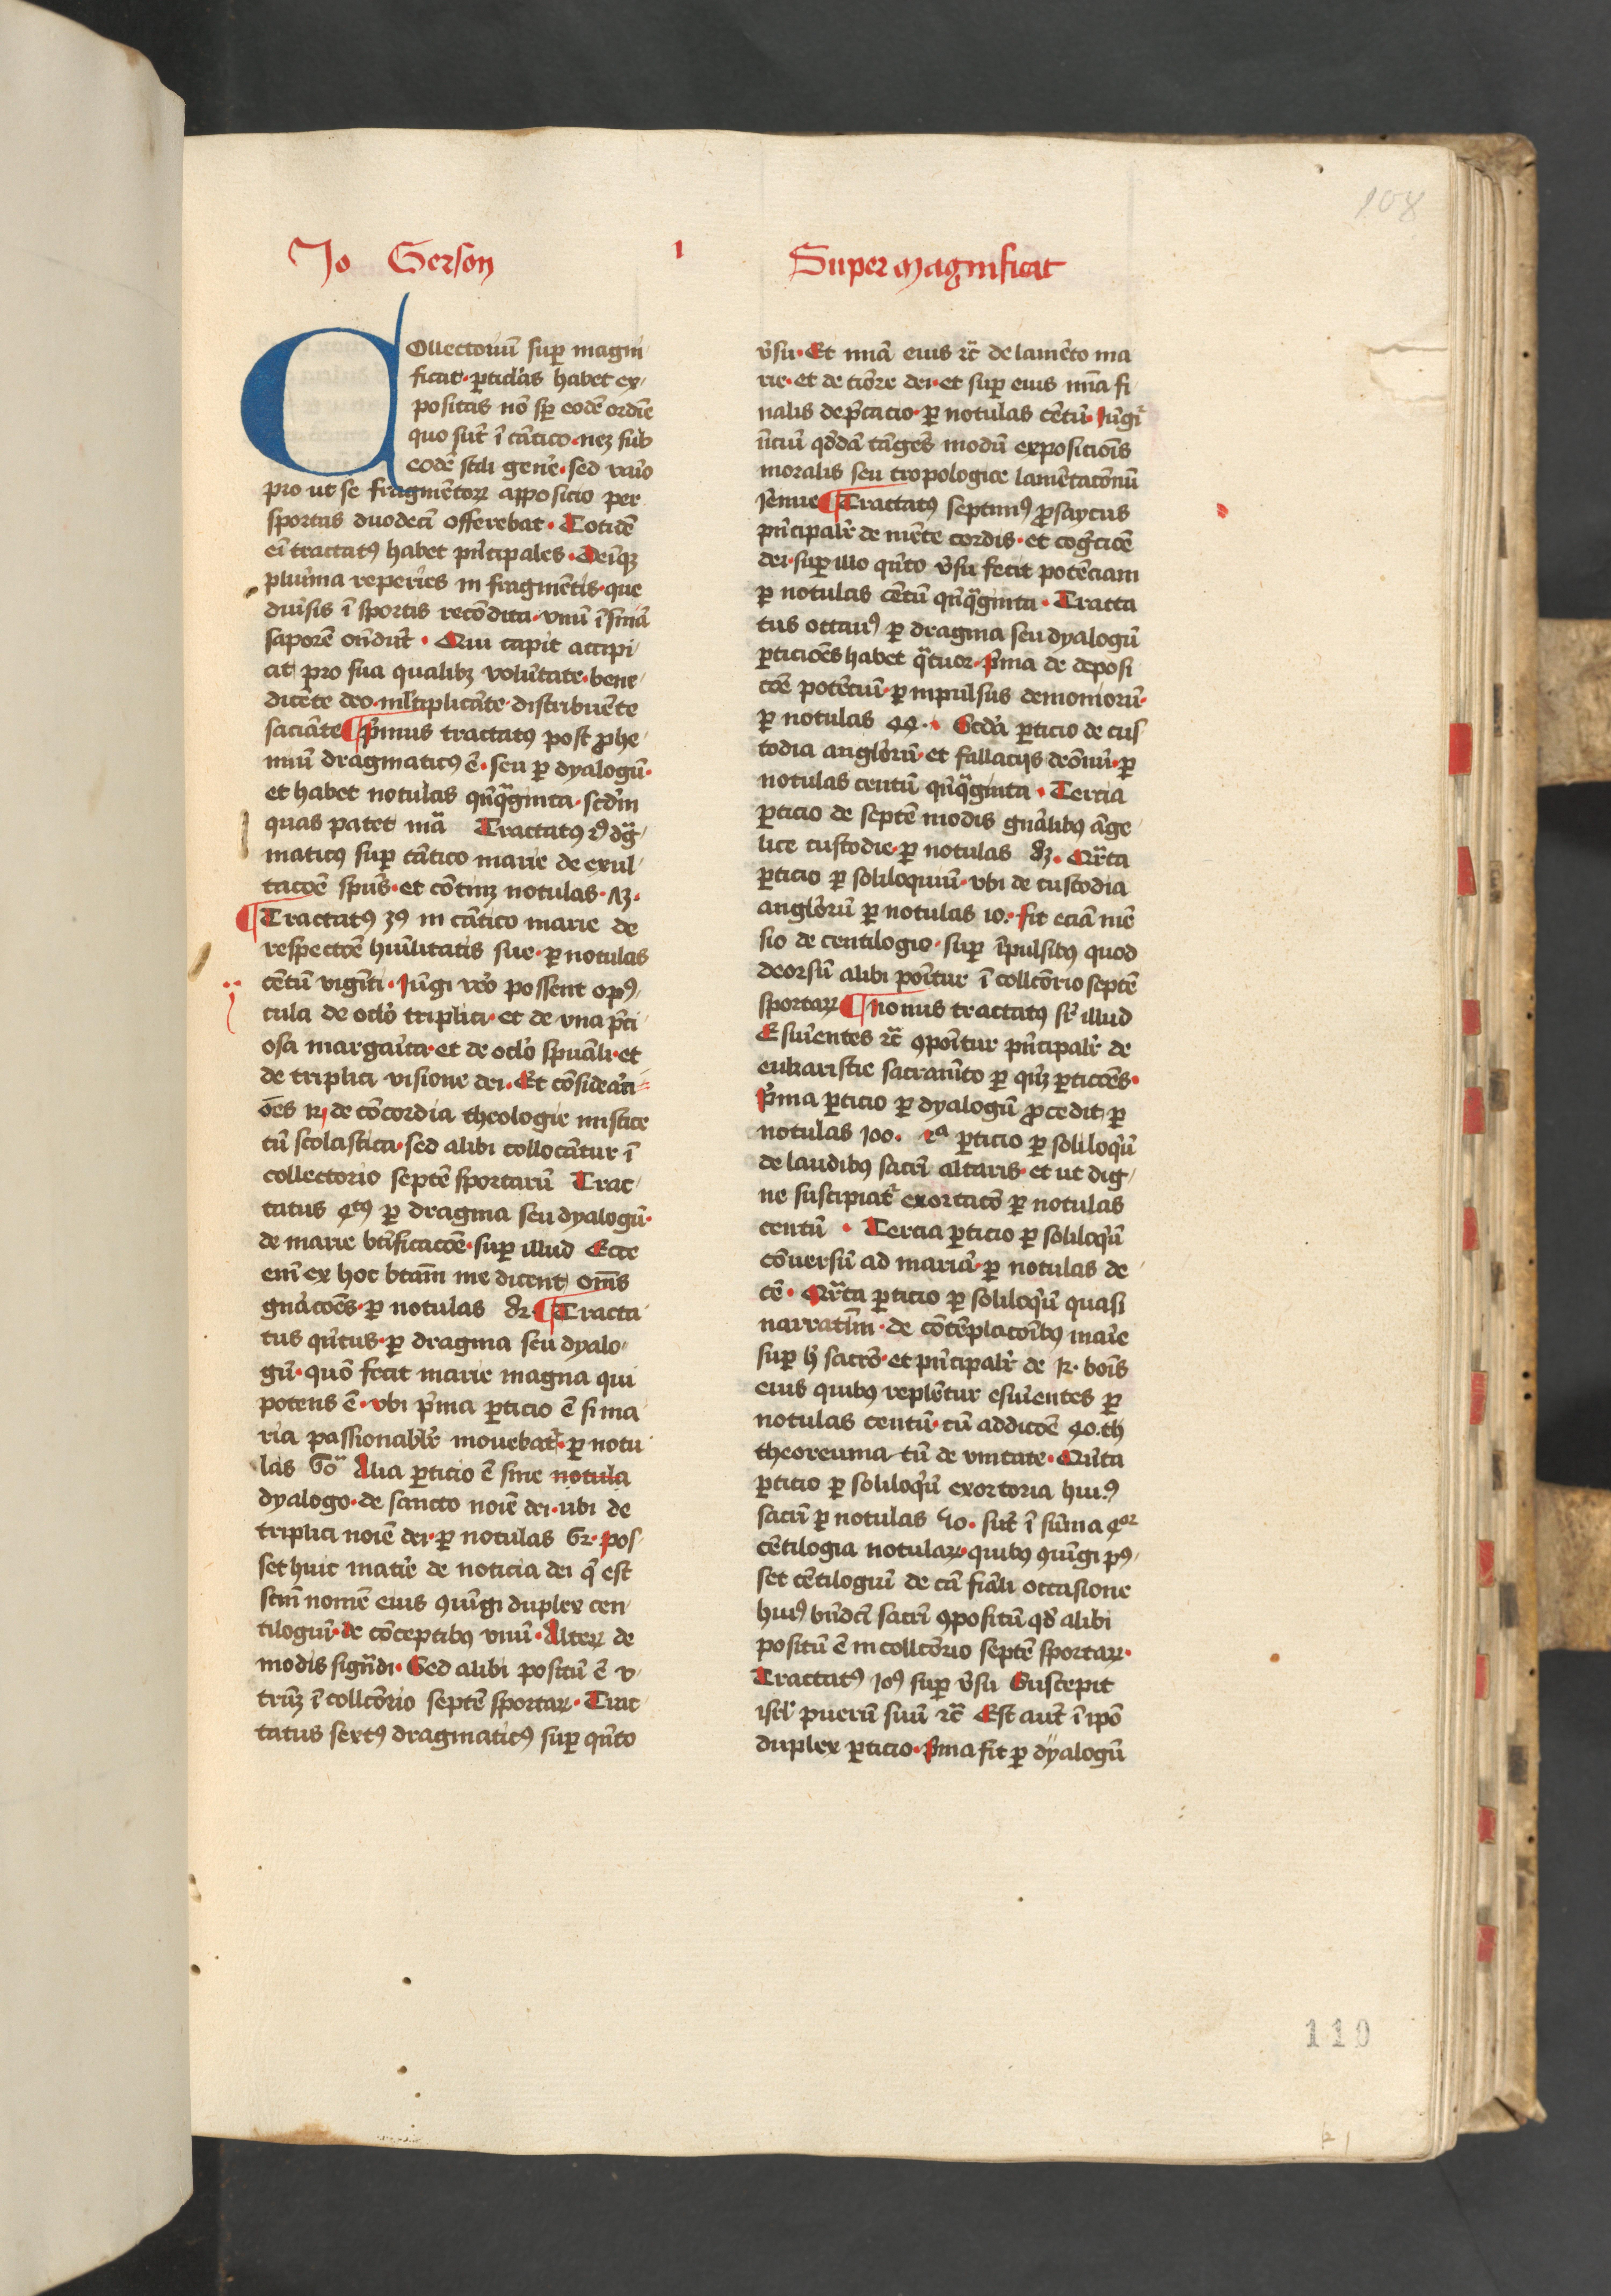 Jo Gerson 1 Super magnificat
108
Collectoriū suꝑ magni
ficat ꝑticl'as habet ex
positas nō sꝑ eodē ordīe
quo sūt ī cātico neꝫ sub
eodē stili gen'e sed va'io
pro ut se fragmētoꝝ apposicio per
sportas duodecī offerebat Totidē
eī tractatꝰ habet p'ncipales Deīqꝫ
plurīma reperies in fragmētis que
diu'sis ī sportis recōdita vnū
saporē oñdūt Qui capit accipi
at pro sua qualibꝫ volūtate bene
dicēte deo ml'tiplicāte distribuēte
saciāte ¶ P'mus tractatꝰ post ꝓhe
miū dragmaticꝰ ē seu ꝑ dyalogū
et habet notulas qūq̄ginta scd'm
quas patet mā Tractatꝰ
maticꝰ suꝑ cātico marie de exul
tacōē sp̄us et cōtinꝫ notulas
¶ Tractatꝰ 3ꝰ in cātico marie de
respectōē huīlitatis sue ꝑ notulas
cētū vigīti Iūgi v'o possent opꝰ
cula de oclō triplici et de vna p'ci
osa margaīta et de oclō spuāli et
de triplici visione dei Et cōsiderāci
ōēs de cōcordia theologie mistice
cū scolastica sed alibi collocātur ī
collectorio septē sportarū Trac
tatus 4tꝰ ꝑ dragma seu dyalogū
de marie btīficacōē suꝑ illud Ecce
enī ex hoc btām me dicent om̄s
gnācōēs ꝑ notulas ¶ Tracta
tus qūtus ꝑ dragma seu dyalo
gū quō fecit marie magna qui
potens ē vbi p'ma ꝑticio ē si ma
ria passionabl'r mouebat' ꝑ notu
las Alia ꝑticio ē sine notula
dyalogo de sancto noīe dei ubi de
triplici noīe dei ꝑ notulas pos
set huic mat'ie de noticia dei q' est
scm̄ nomē eius ꝯiūgi duplex cen
tilogiū de cōceptibꝰ vnū Alteꝝ de
modis sigñdi Sed alibi positū ē v
trūqꝫ ī collcōrio septē sportaꝝ Trac
tatus sextꝰ dragmaticꝰ suꝑ qūto
v'su Et mīa eius ꝛc̄ de lamēto ma
rie et de tiōre dei et suꝑ eius mīa fi
nalis dep'cacio ꝑ notulas cētū Iūgi'
qddā tāgēs modū exposicionis
moralis seu tropologice lamētacōnū
¶ Tractatꝰ septimꝰ ꝓsaycus
p'ncipalr̄ de mēte cordis et cog'cōē
dei suꝑ illo qūto v'su fecit potēciam
ꝑ notulas cētū qūq̄ginta Tracta
tus octauꝰ ꝑ dragma seu dyalogū
ꝑticiōēs habet q̄tuor P'ma de deposi
cōē potēcū ꝑ inpulsus demoniorū
ꝑ notulas 44 Scdā ꝑticio de cus
todia angl'orū et fallacijs deōnū ꝑ
notulas centū qūq̄ginta Tercia
ꝑticio de septē modis gnālibꝰ āge
lice custodie ꝑ notulas Qr̄ta
ꝑticio ꝑ soliloquiū vbi de custodia
angl'orū ꝑ notulas 10 fit eciā mē
sio de centilogio suꝑ īpulsibꝰ quod
deorsū alibi ponītur ī collcōrio septē
sportaꝝ ¶ Nonus tractatꝰ sr̄ illud
Esuriētes ꝛc̄ ꝯponītur p'ncipalr̄ de
eukaristie sacramēto ꝑ qūqꝫ ꝑticōēs
P'ma ꝑticio ꝑ dyalogū ꝓcedit ꝑ
notulas 100 2ᵃ ꝑticio ꝑ soliloq'ū
de laudibꝰ sacrī altaris et ut dig
ne suscipiat' exortacō ꝑ notulas
centū Tercia ꝑticio ꝑ soliloq'ū
cōuersū ad mariā ꝑ notulas de
cē Qr̄ta ꝑticio ꝑ soliloq'ū quasi
narratīm de cōtēplacōibꝰ ma'ie
suꝑ h' sacrō et p'ncipalr̄ de boīs
eius quibꝰ replētur esuriētes ꝑ
notulas centū cū addicōē 40 th
theoreuma tū de vnitate Qūta
ꝑticio ꝑ soliloq'ū exortoria huiꝰ
sacrī ꝑ notulas sūt ī sūma 4or
cētilogia notulaꝝ quibꝰ ꝯiūgi pꝰ
set cētilogiū de cā fināli occasione
huiꝰ bñdcī sacrī ꝯpositū qd' alibi
positū ē in collcōrio septē sportaꝝ
Tractatꝰ 10ꝰ suꝑ v'su Suscepit
isrl' puerū suū ꝛc̄ Est aut̄ ī ipō
duplex ꝑticio P'ma fit ꝑ dyalogū
110